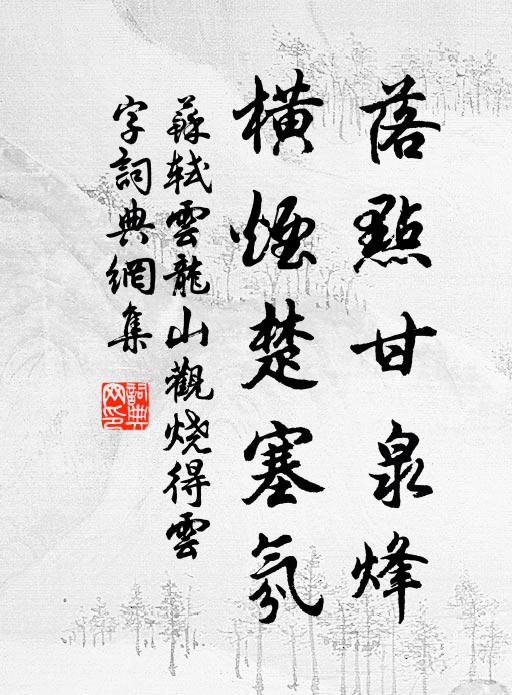 落點甘泉烽
橫煙楚塞氛
蘇軾雲龍山觀燒得雲
字詞典網集
詞典網印